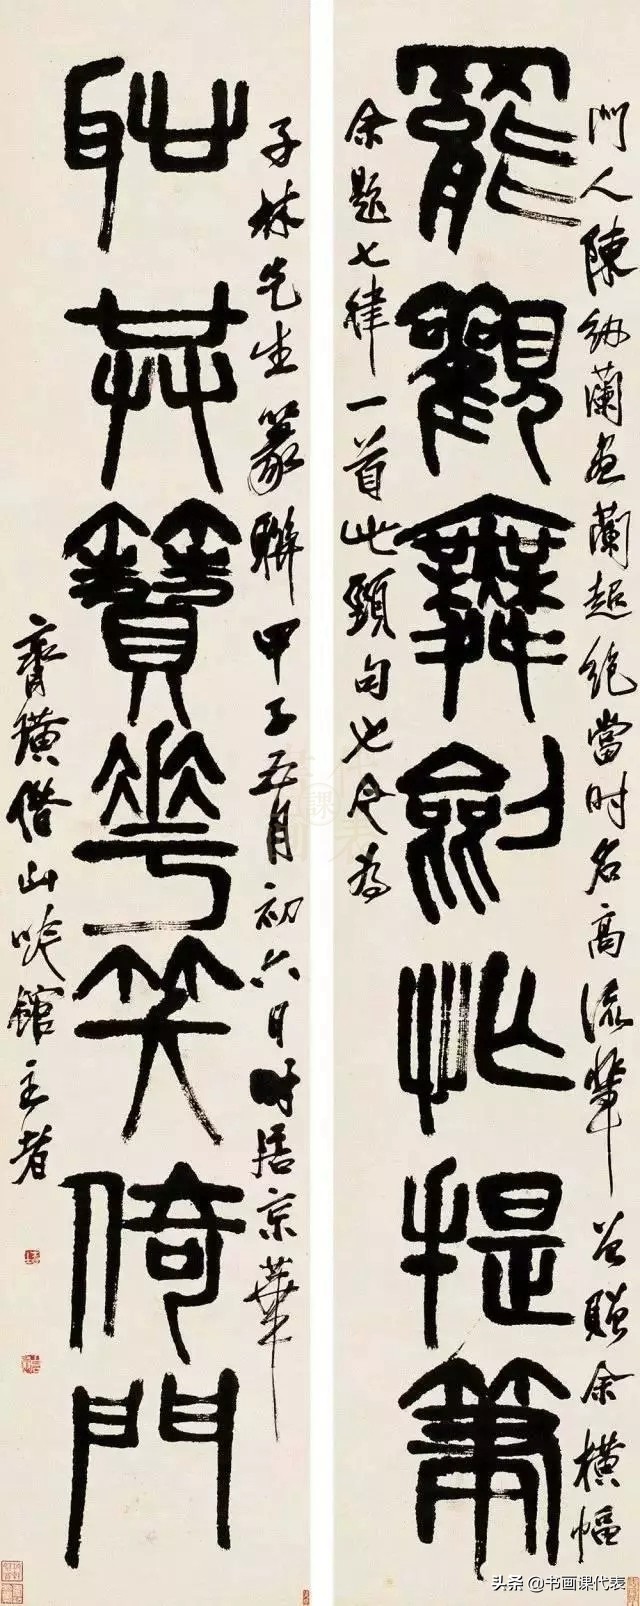 門人陳紉蘭画蘭超絕當时名高流輩贈余橫幅
罷觀舞劍忙提筆
余題七律一首此頸句也今為
子林先生篆聯甲子五月初六日时居京華
耻共簪花笑倚門
齊璜借山吟館主者
头条 @书画课代表